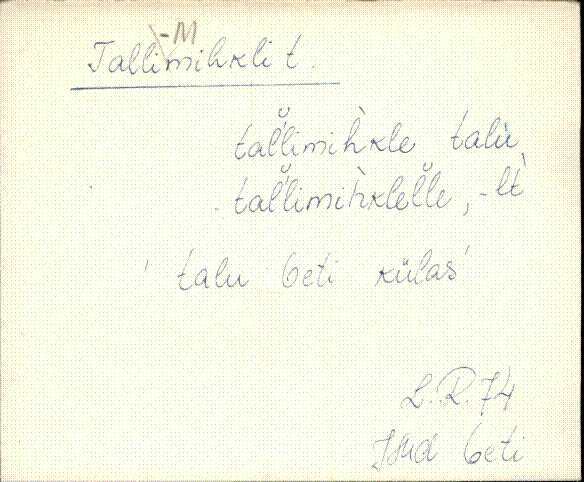 -M
Tallimihkli t.
tal̆limih̀kle talu
tal̆limih̀klel̆le, -lt̀
' talu beti külas'
L.R. 74
beti